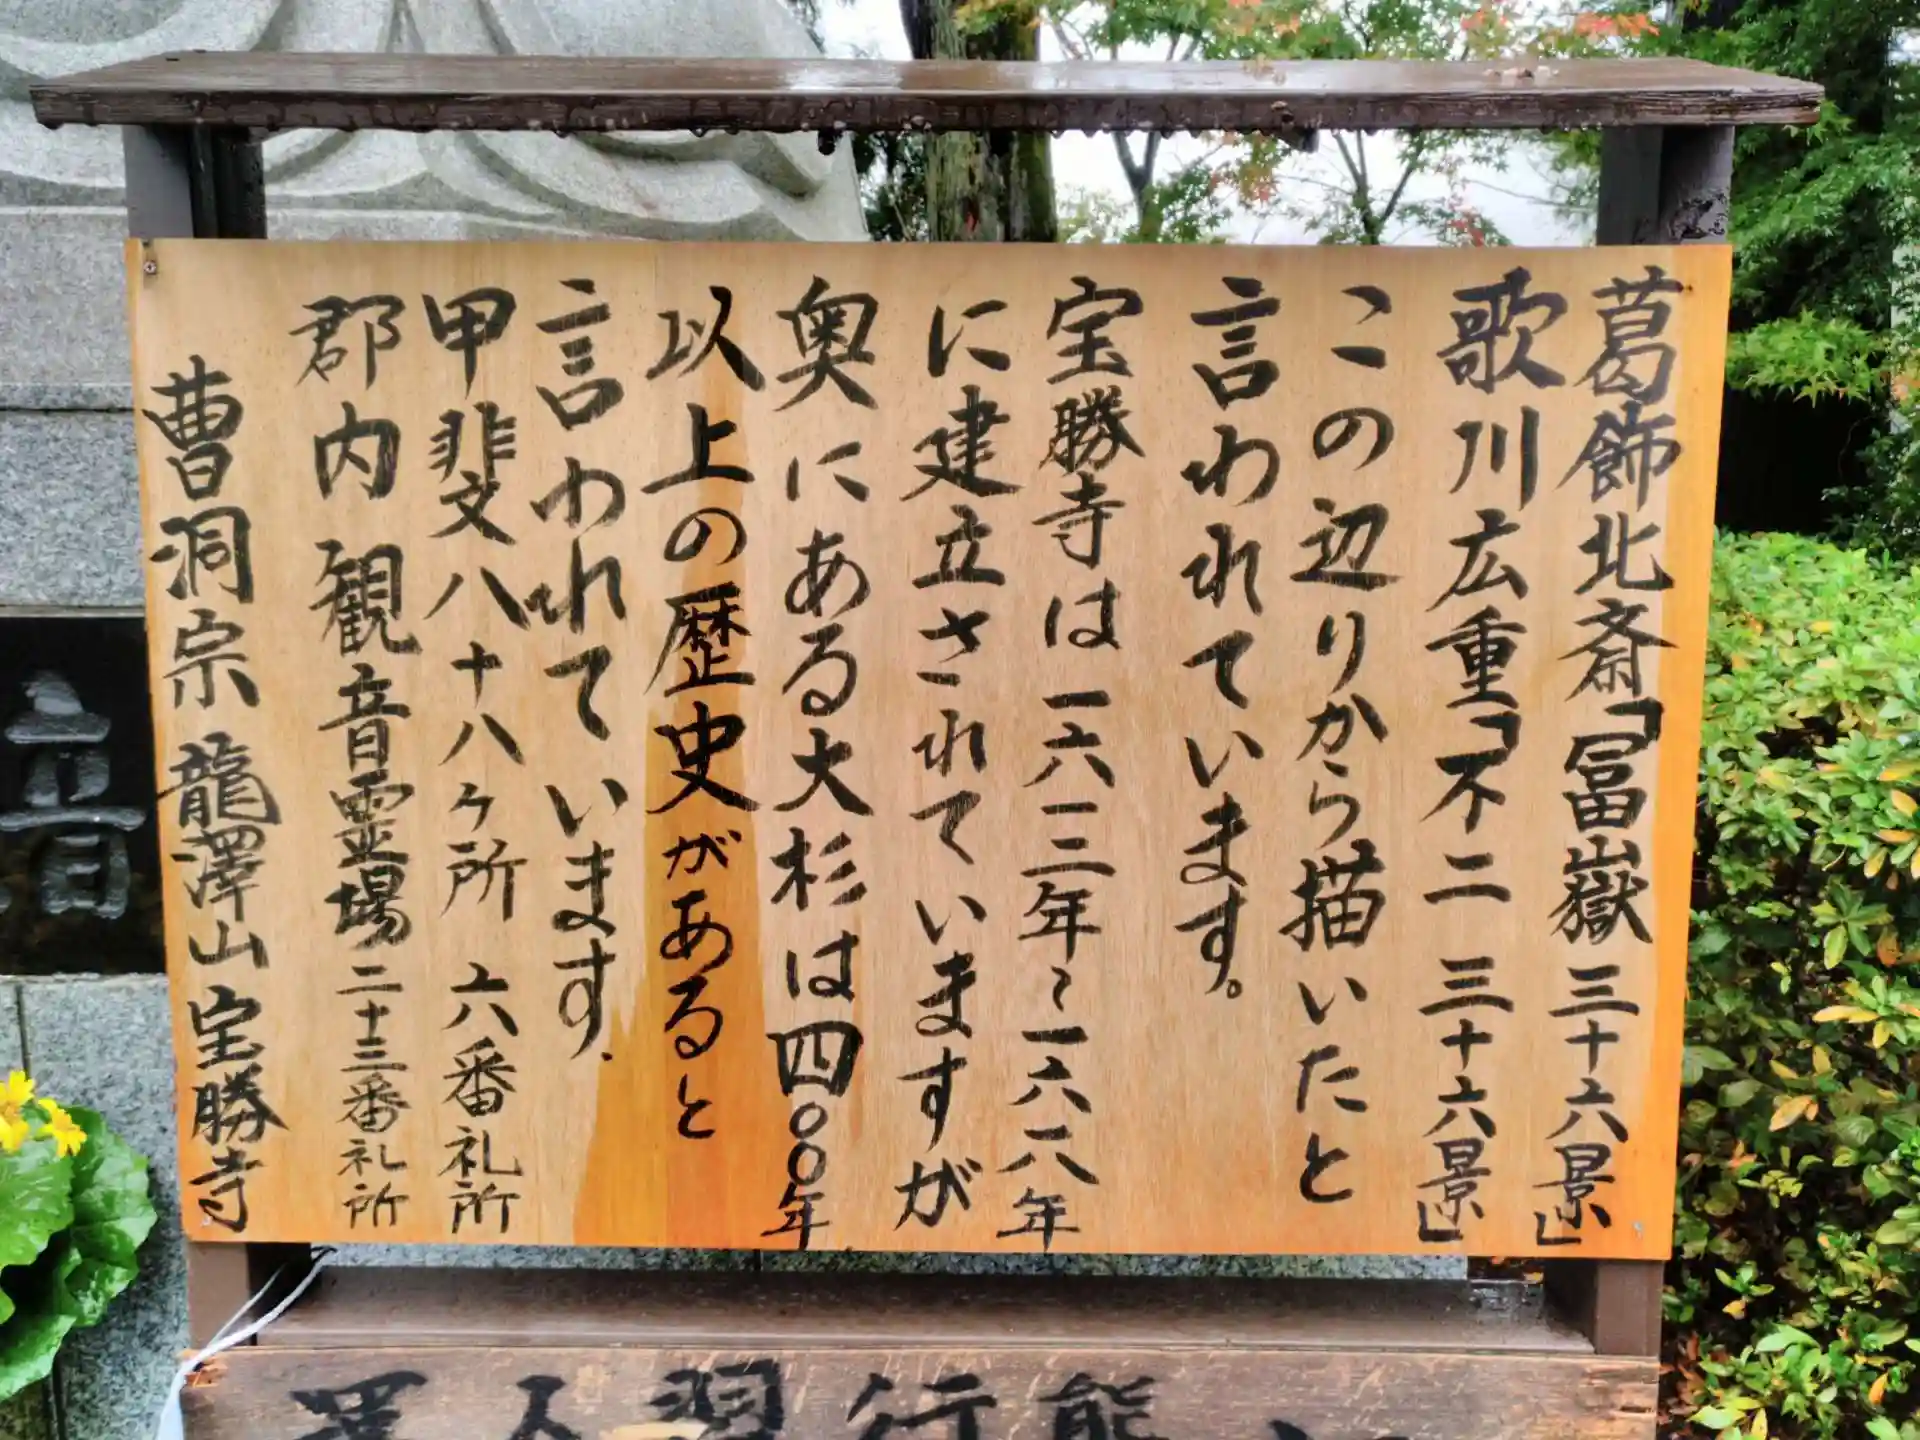 葛飾北斎「冨嶽三十六景」
歌川広重「不二三十六景」
この辺りから描いたと
言われています。
宝勝寺は一六一三年~一六一八年
に建立されていますが
奥にある大杉は四〇〇年
以上の歴史があると
言われています.
甲斐八十八ヶ所 六番礼所
郡内観音霊場二十三番礼所
曹洞宗 龍澤山 宝勝寺
音